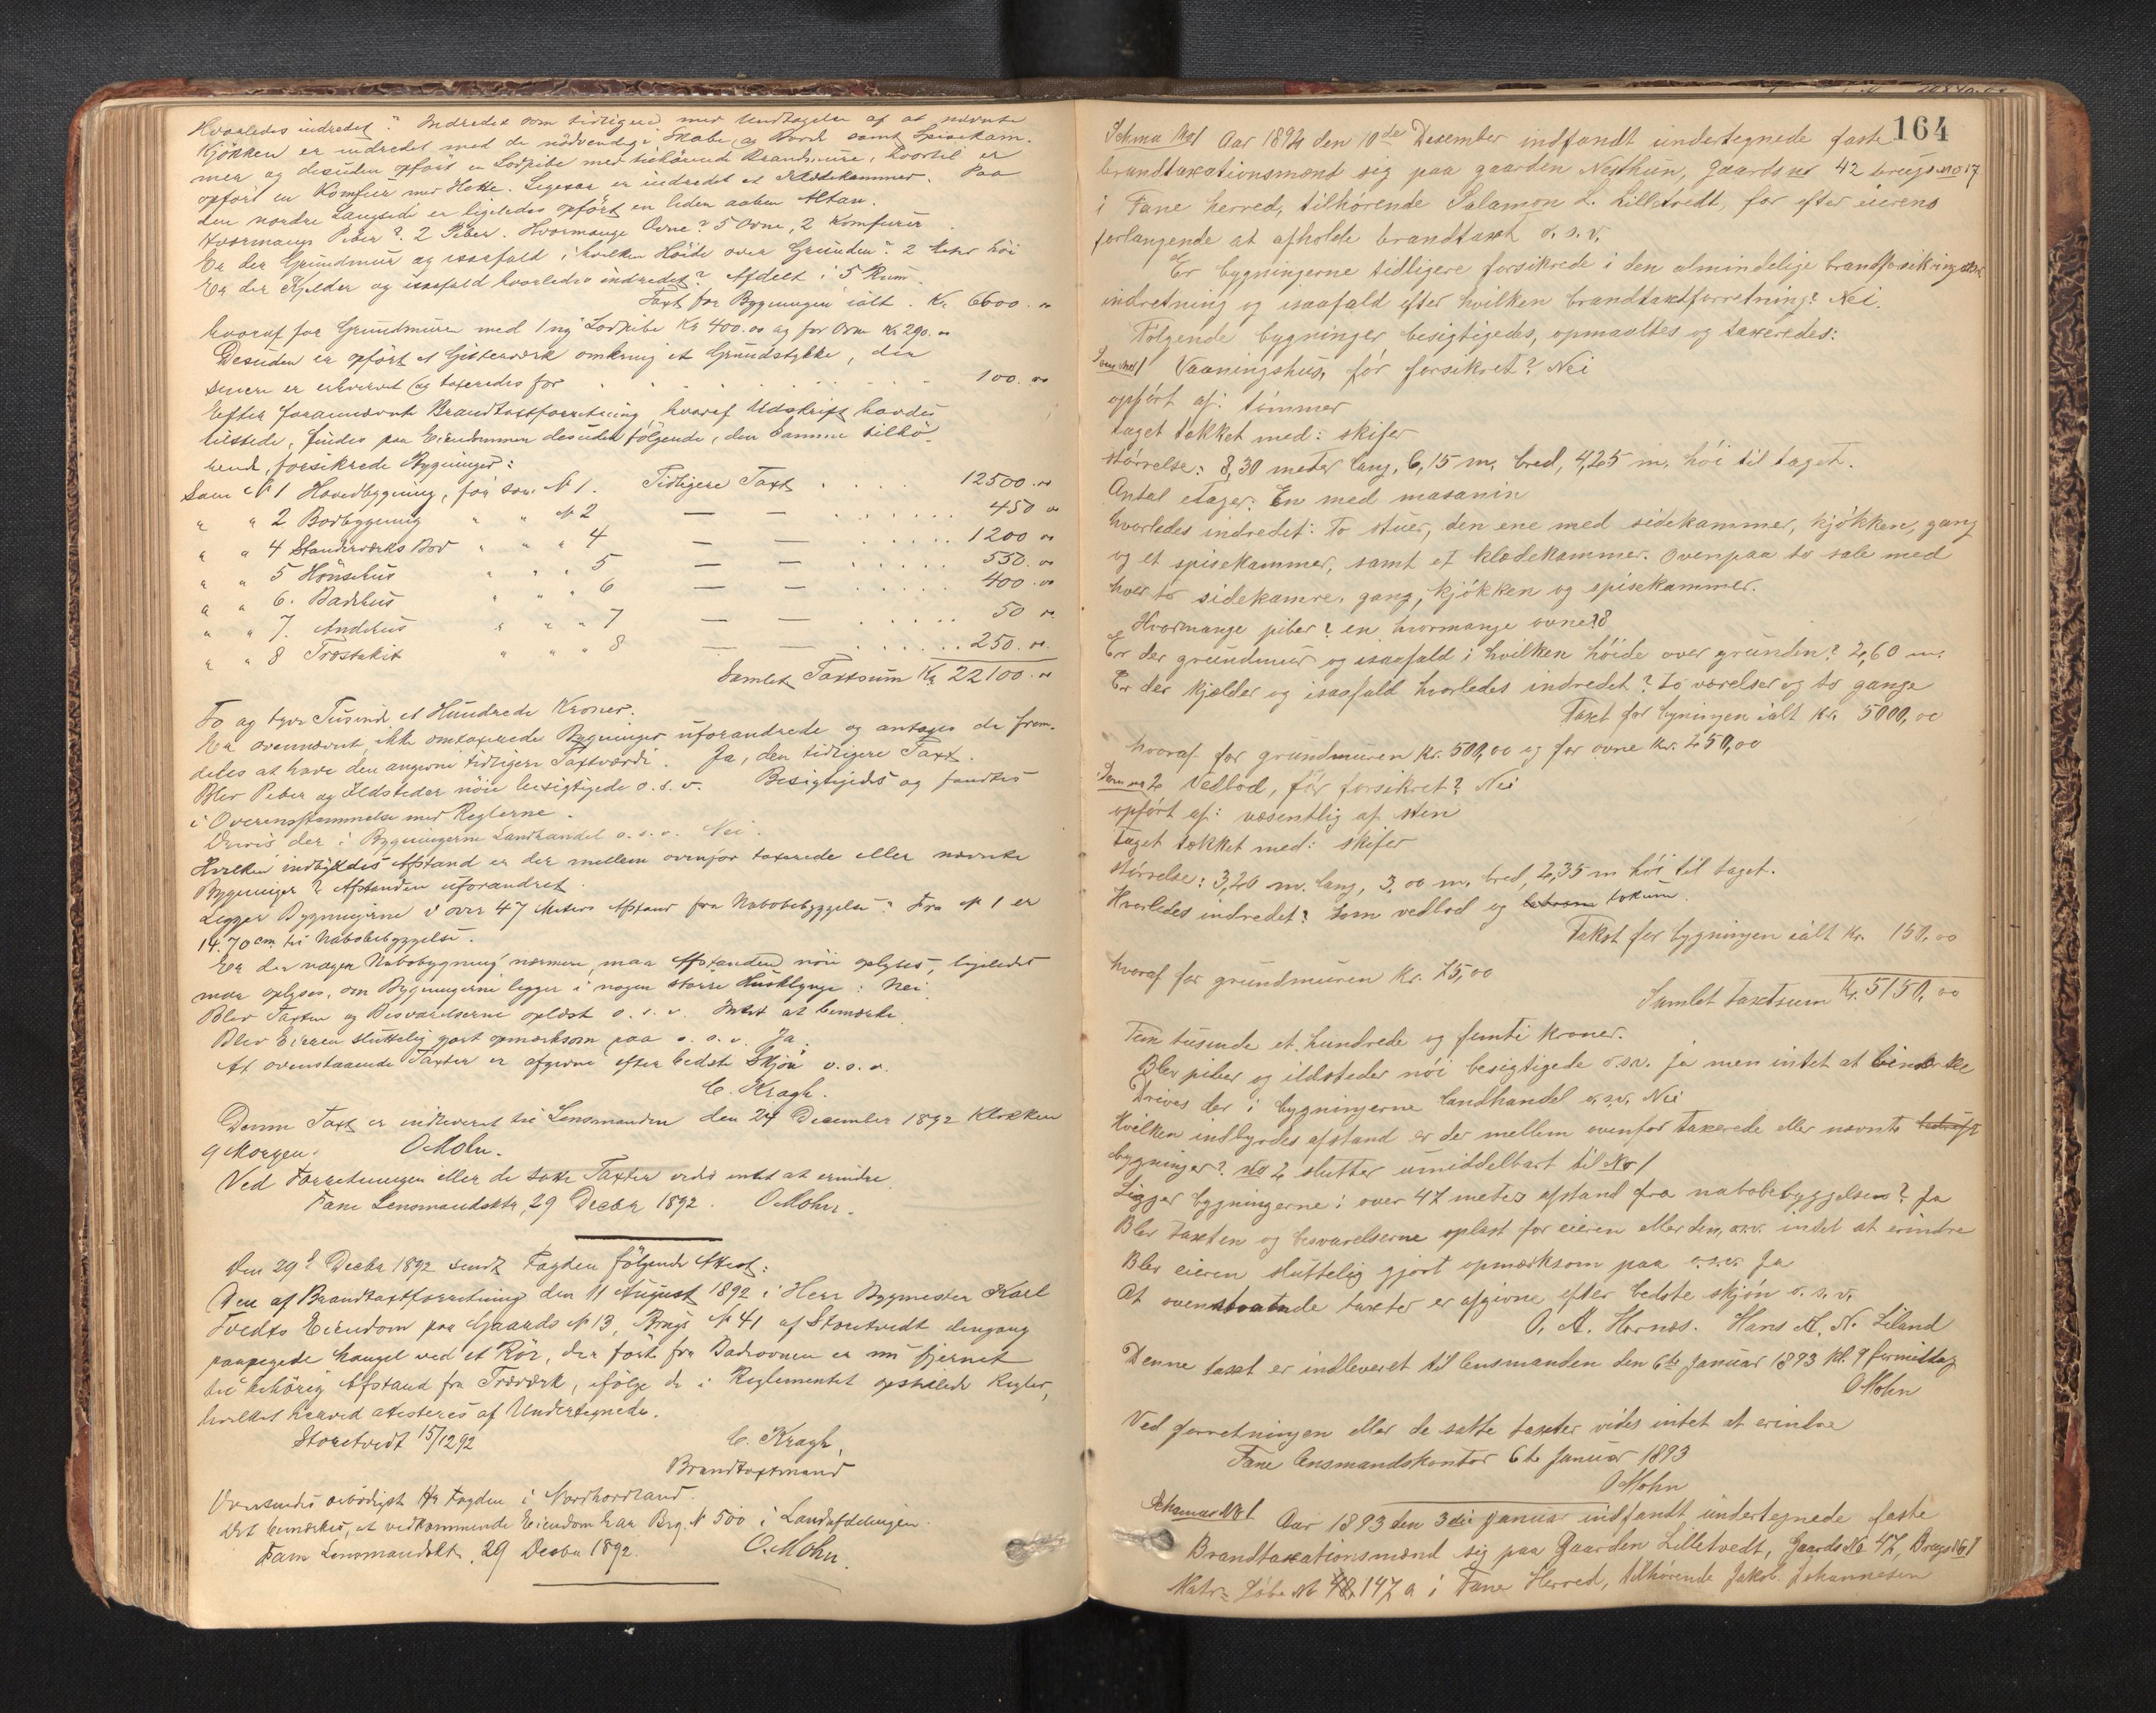 Hvorledes indredet? Indredet som tidligere med Undtagelse af at nævnte
Kjökken er indredet med de nödvendige Skabe og Borde samt Spisekam-
mer og desuden opfört en Lodpibe med tilhörende Brandmure, hvortil er
opfört en Komfur med Hette. Ligesaa er indredet et Klædekammer. Paa
den nordre Langside er ligeledes opfört en liden aaben Altan.
Hvormange Piber? 2 Piber. Hvormange Ovne? 5 Ovne, 2 Komfurer
Er der Grundmur og isaafald i hvilken Höide over Grunden? 2 Meter höi
Er der Kjelder og isaafald hvorledes indredet? Afdelt i 5 Rum
Taxt for Bygningen ialt. Kr. 6600. "
hvoraf for Grundmuren med 1 ny Lodpibe Kr 400.00 og for Ovne Kr 290. "
Desuden er opfört et Gitterværk omkring et Grundstykke, der
senere er erhvervet og taxeredes for . . . . . . . 100. "
Efter forannævnte Brandtaxtforretning hvoraf Udskrift havdes
tilstede, findes paa Eiendommen desuden fölgende, den Samme tilhö-
rende, forsikrede Bygninger:
Som N 1 Hovedbygning, för som N 1. Tidligere Taxt . . . . 12500. "
" " 2 Bodbygning " " N 2 — — . . . . . . 450 "
" " 4 Standerværks Bod " " " 4 — — . . . . . 1200 "
" " 5 Hönsehus " " " 5 — — . . . . . . 550. "
" " 6. Badehus " " " 6 — — . . . . . . 400. "
" " 7. Andehus " " " 7 — — . . . . . . 50 "
" " 8 Træstakit " " " 8 — — . . . . . . 250. "
Samlet Taxtsum Kr 22100. "
To og tyve Tusinde et Hundrede Kroner.
Er ovennævnte, ikke omtaxerede Bygninger uforandrede og antages de frem-
deles at have den angivne tidligere Taxtværdi. Ja, den tidligere Taxt.
Blev Piber og Ildsteder nöie besigtigede o. s. v. Besigtigedes og fandtes
i Overensstemmelse med Reglerne.
Drives der i Bygningerne Landhandel o. s. v. Nei.
Hvilken indbyrdes Afstand er der mellem ovenfor taxerede eller nævnte
Bygninger? Afstanden uforandret.
Ligger Bygningerne i over 47 Meters Afstand fra Nabobebyggelse? Fra N 1 er
14.70 cm til Nabobebyggelse.
Er der nogen Nabobygning nærmere, maa Afstanden nöie oplyses, ligeledes
maa oplyses, om Bygningerne ligger i nogen större Husklynge: Nei.
Blev Taxten og Besvarelserne oplæst o. s. v. Intet at bemærke.
Blev Eieren sluttelig gjort opmærksom paa o. s. v. Ja.
At ovenstaaende Taxter er afgivne efter bedste Skjön o. s. v.
C. Kragh.
Denne Taxt er indleveret til Lensmanden den 24 December 1892 Klokken
9 Morgen. O Mohn.
Ved Forretningen eller de satte Taxter vides intet at erindre.
Fane Lensmandsktr, 29 Decbr 1892. O Mohn.
Den 29d Decbr 1892 sendt Fogden fölgende Attest:
Den af Brandtaxtforretning den 11 August 1892 i Herr Bygmester Karl
Tvedts Eiendom paa Gaards N 13, Brugs N 41 af Storetvedt dengang
paapegede Mangel ved et Rör, der förte fra Badeovnen er nu fjernet
til behörig Afstand fra Træværk, ifölge de i Reglementet opstillede Regler,
hvilket herved attesteres af Undertegnede.
Storetvedt 15/12 92
C. Kragh,
Brandtaxtmand
Oversendes ærbödigst Hr Fogden i Nordhordland.
Det bemærkes, at vedkommende Eiendom har Brg. N 500 i Landafdelingen.
Fane Lensmandsktr, 29 Decbr 1892. O. Mohn.
164
Schma No 1 Aar 1892 den 10de Desember indfandt undertegnede faste
brandtaxationsmænd sig paa gaarden Nesthun, Gaards no 42 brugs no 17
i Fane herred, tilhórende Salamon L. Lilletvedt, for efter eierens
forlangende at afholde brandtaxt o. s. v.
Er bygningerne tidligere forsikrede i den almindelige brandforsikrings
indretning og isaafald efter hvilken brandtaxtforretning? Nei.
Fólgende bygninger besigtigedes, opmaaltes og taxeredes:
Som No 1 Vaaningshus, fór forsikret? Nei
opfórt af: tómmer
taget tækket med: skifer
stórrelse: 8,30 meter lang, 6,15 m. bred, 4,25 m. hói til taget.
Antal etager: En med masanin
hvorledes indredet: To stuer, den ene med sidekammer, kjókken, gang
og et spisekammer, samt et klædekammer. Ovenpaa to sale med
hver to sidekamre, gang, kjókken og spisekammer.
Hvormange piber? en hvormange ovne? 8
Er der grundmur og isaafald i hvilken hóide over grunden? 2,60 m.
Er der kjælder og isaafald hvorledes indredet? to værelser og to gange
Taxt for bygningen ialt kr. 5000,00
hvoraf for grundmuren kr. 500,00 og for ovne kr. 250,00
Som no 2 Vedbod, fór forsikret? Nei
opfórt af: væsentlig af sten
Taget tækket med: skifer
Stórrelse: 3,20 m. lang, 3,00 m. bred, 2,35 m hói til taget.
Hvorledes indredet? Som vedbod og tokum.
Takst for bygningen ialt kr. 150,00
hvoraf for grundmuren kr. 75,00
Samlet taxtsum Kr. 5150,00
Fem tusinde et hundrede og femti kroner.
Blev piber og ildsteder nói besigtigede o.s.v. ja men intet at bemærke
Drives der i bygningerne landhandel o.s.v. Nei
Hvilken indbyrdes afstand er der mellem ovenfor taxerede eller nævnte
bygninger? No 2 slutter umiddelbart til No 1
Ligger bygningerne i over 47 meters afstand fra nabobebyggelsen? Ja
Blev taxten og besvarelserne oplæst for eieren eller den, o.s.v. intet at erindre
Blev eieren sluttelig gjórt opmærksom paa o.s.v. Ja
At ovenstaaende taxter er afgivne efter bedste skjón o. s. v.
O. A. Hornæs. Hans A. N. Liland
Denne taxt er indleveret til lensmanden den 6te Januar 1893 kl. 9 formiddag
O Mohn
Ved forretningen eller de satte taxter vides intet at erindre
Fane lensmandskontor 6te Januar 1893
O Mohn
Schema No 1. Aar 1893 den 3die Januar indfandt undertegnede faste
Brandtaxationsmænd sig paa Gaarden Lilletvedt, Gaards No 47, Brugs No 1
Matr= Lóbe No 147 a i Fane Herred, tilhórende Jakob Johannesen